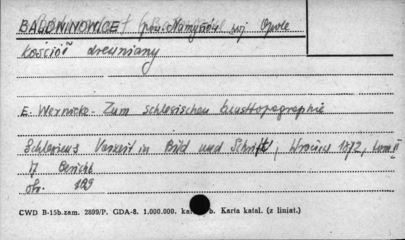 BĄKOWICE pow. Namysłów woj. Opole
kościół drewniany
E. Wernicke - Zum schlesischen Kunsttopographie
Schlesiens Vorzeit in Bild und Schrift, Wrocław 1872, tom II
17 Bericht
str. 129
CWD B-15b.zam. 2899/P. GDA-8. 1.000.000. kar. b. Karta katal. (z liniat.)